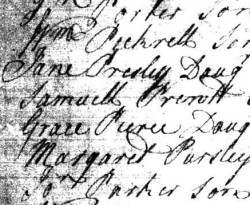 Parker Son
Wm Pickrell Son
Jane Presley Daug
Samuell Prerott
Grace Peirce Daug
Margaret Pursley
Jos Parker Son